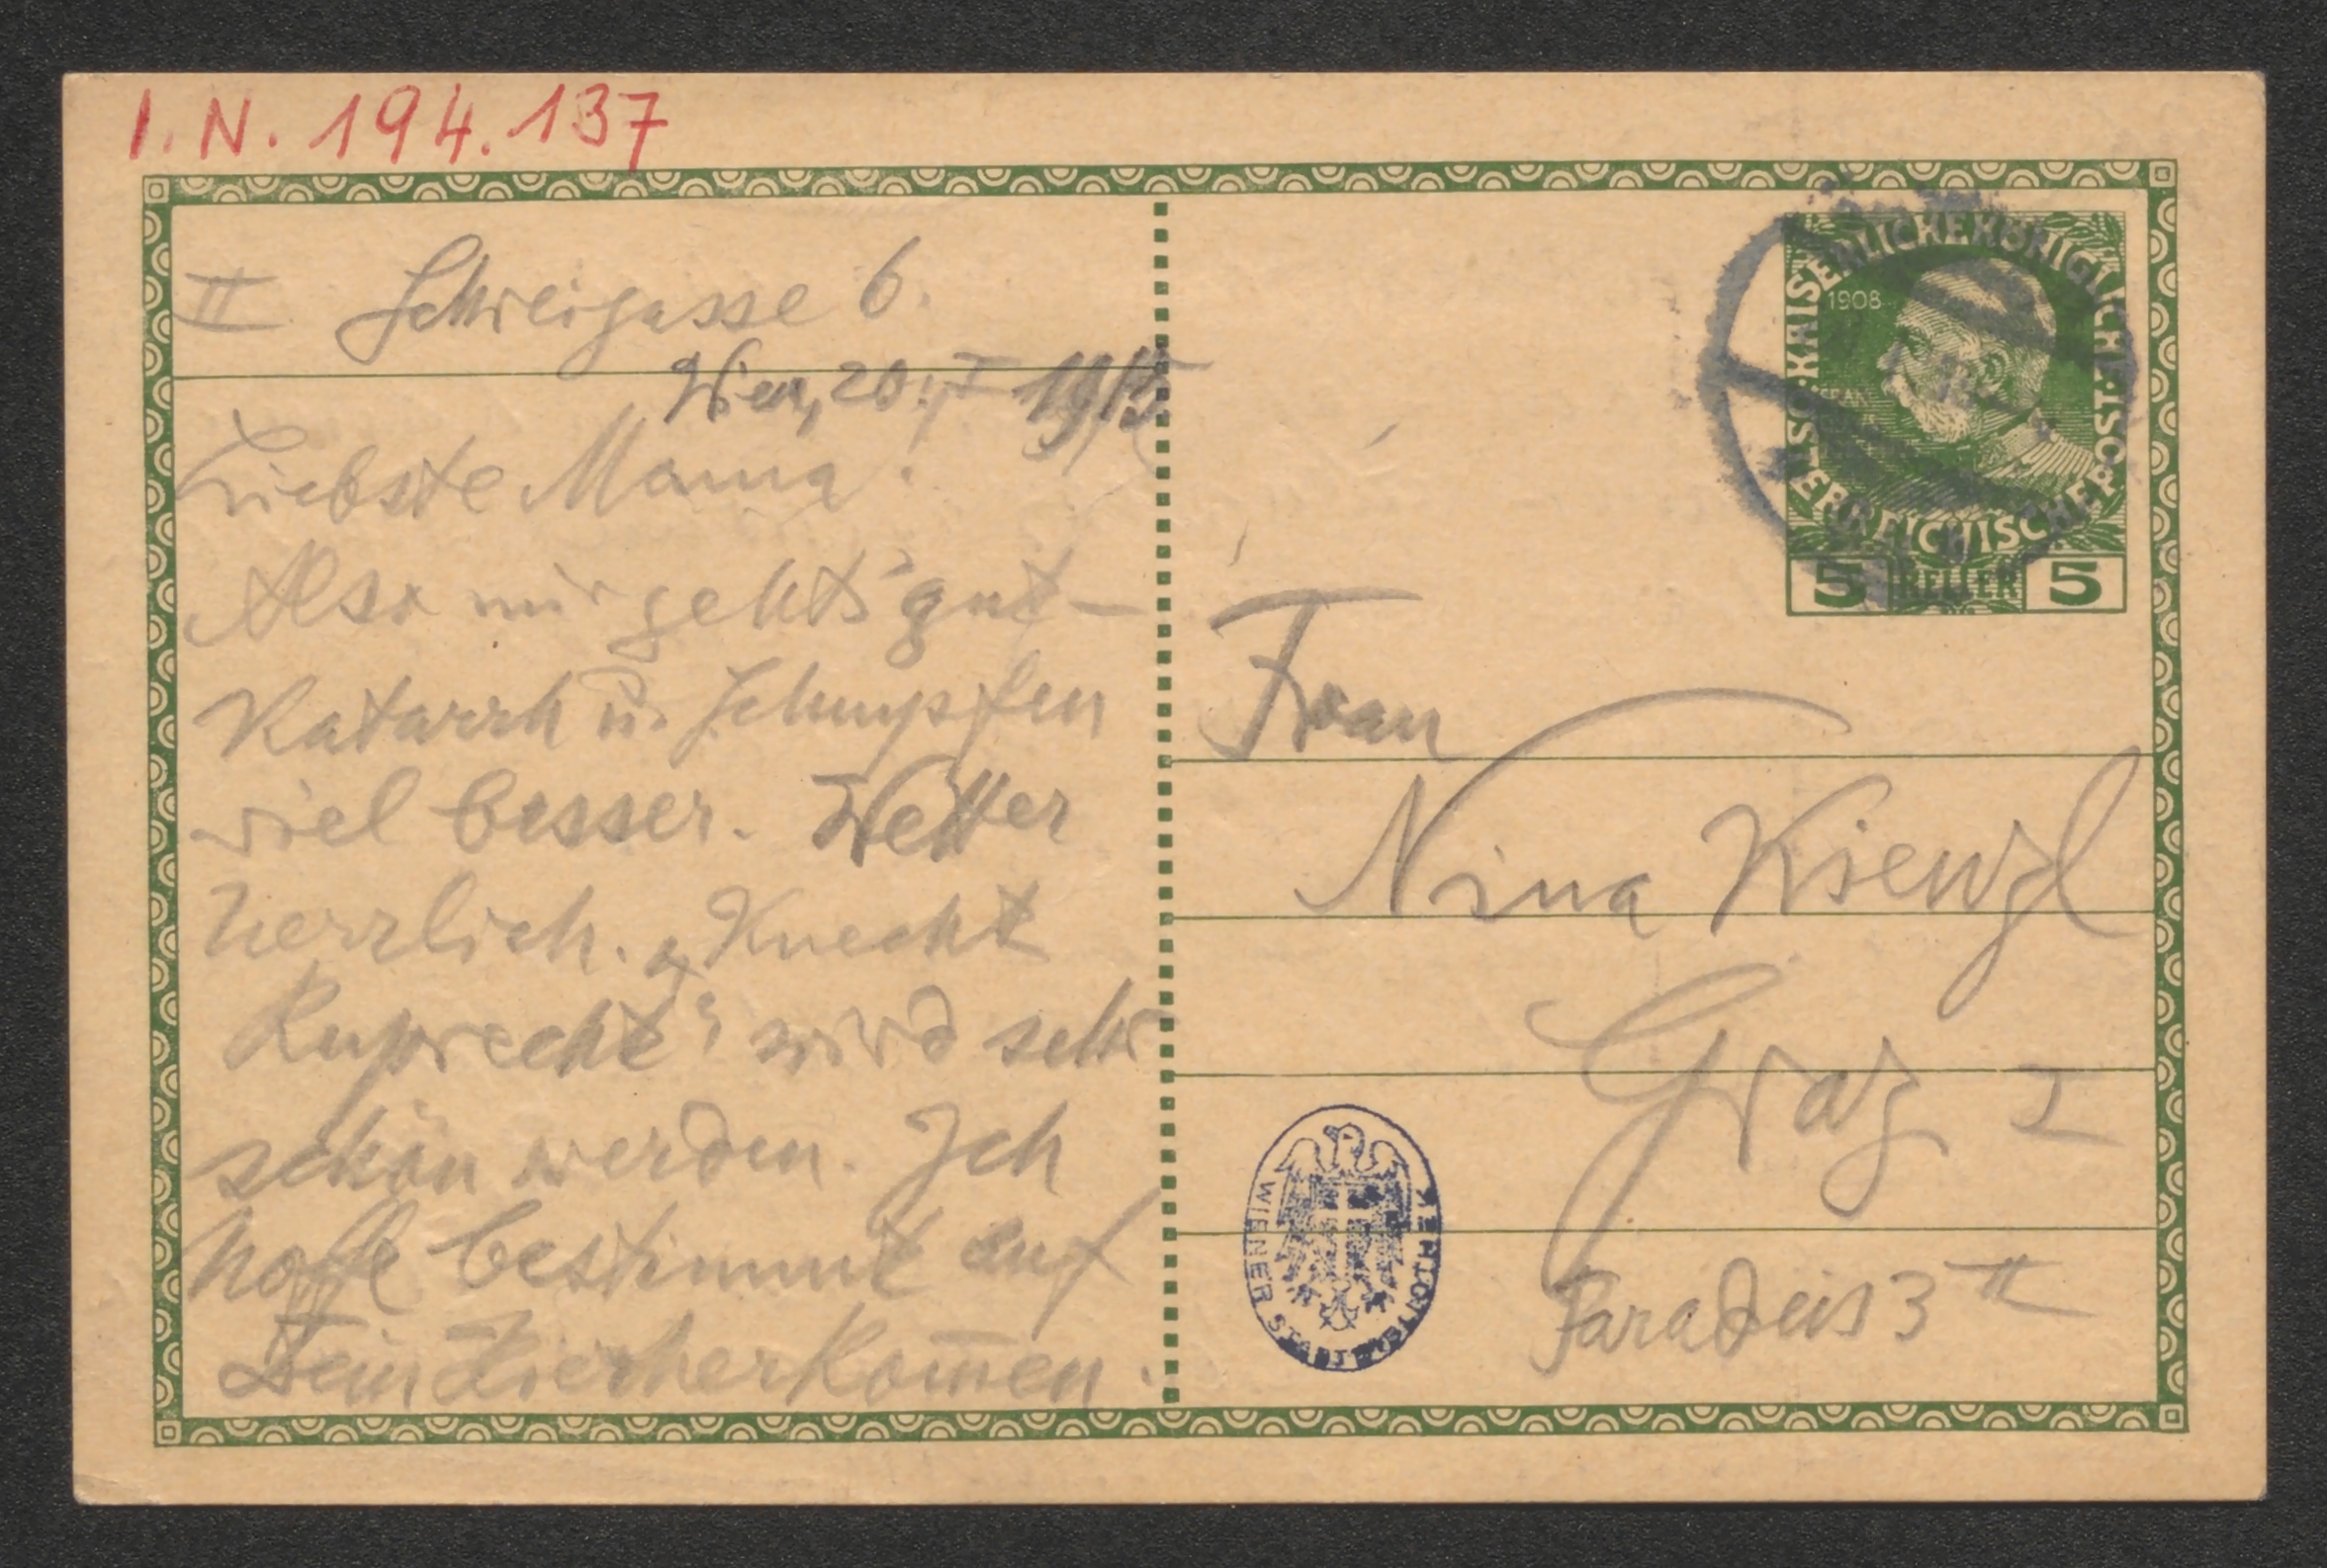 I. N. 194.137
II Schreigasse 6.
Wien, 20. I 1915
Liebste Mama!
Also mir geht's gut –
Katarrh u. Schnupfen
viel besser. Wetter
herrlich. „Knecht
Ruprecht" wird sehr
schön werden. Ich
hoffe bestimmt auf
Dein Hierherkom̄en.
KAISERLICHE KÖNIGLICHE
ÖSTERREICHISCHE POST
1908
5 HELLER 5
Frau
Nina Kienzl
Graz I
Paradeis 3 II
WIENER STADTBIBLIOTHEK